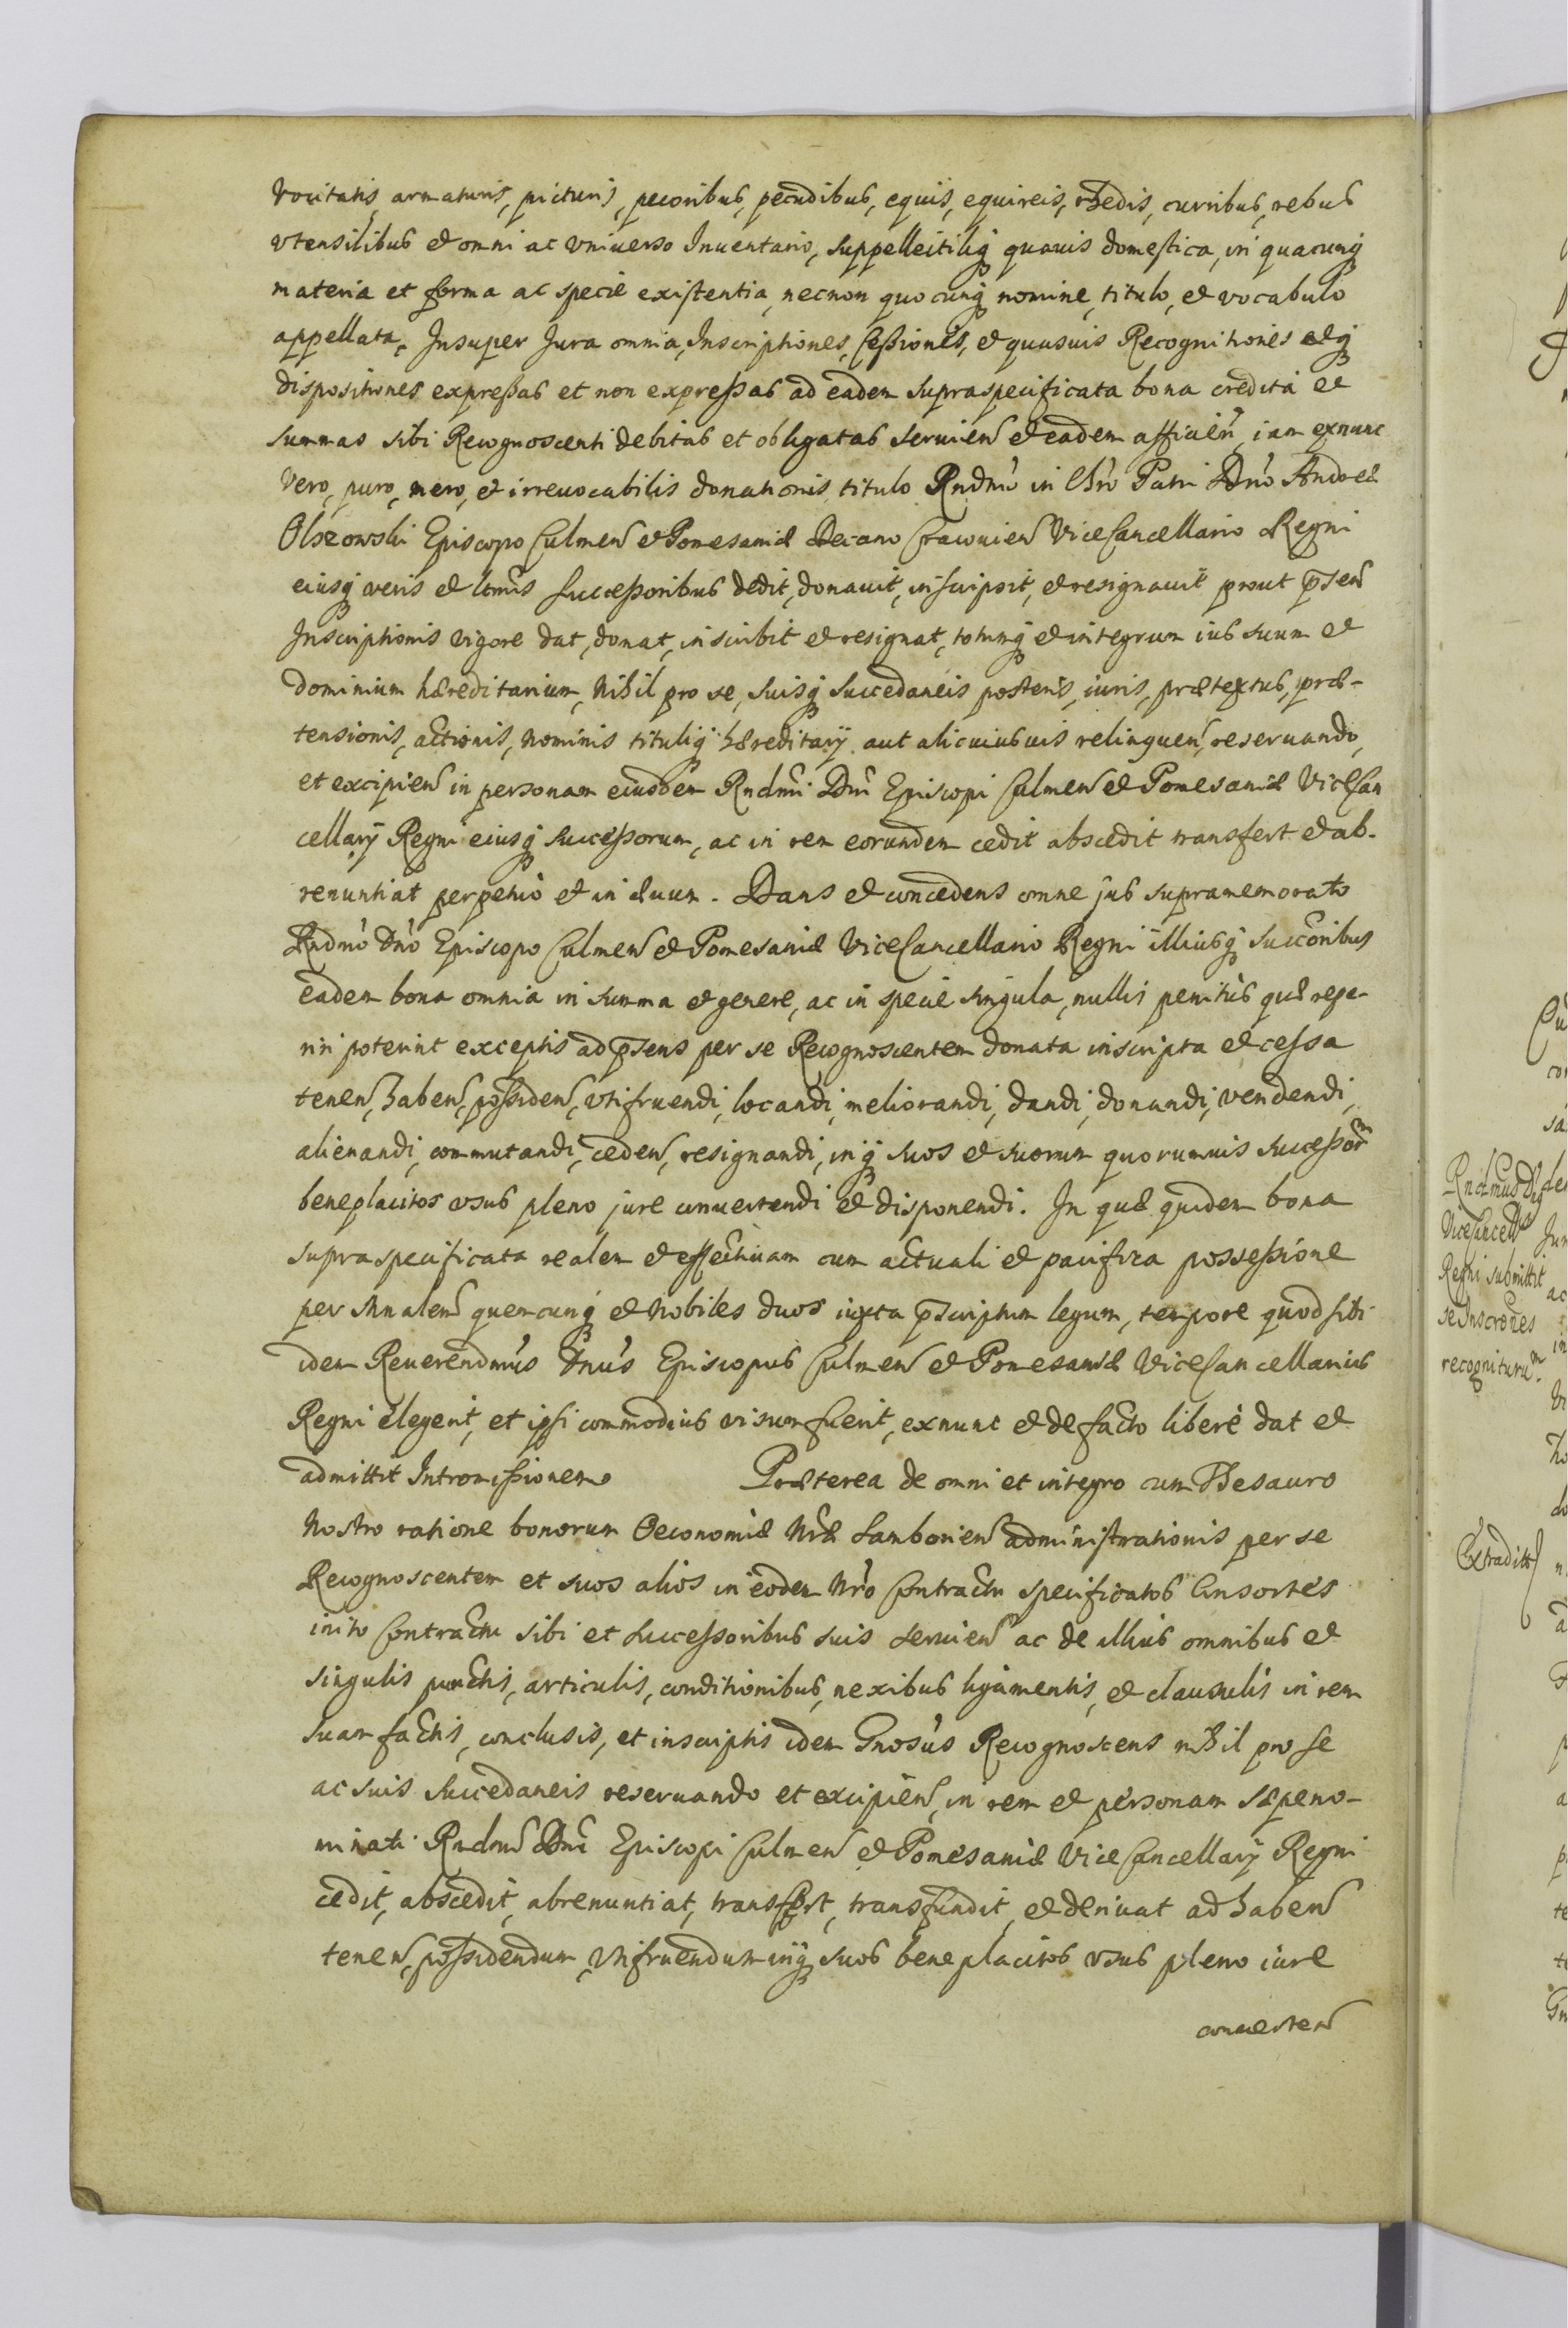 vocitatis armaturis, picturis, pecoribus, pecudibus, equis, equireis, rhedis, curribus, rebus
vtensilibus et omni ac vniuerso Inuentario, suppellectiliq; quauis domestica, in quacunq;
materia et forma ac specie existentia, necnon quocunq; nomine, titulo, et vocabulo
appellata. Insuper Jura omnia, Inscriptiones, Cessiones, et quasuis Recognitiones et
dispositiones expressas et non expressas ad eadem supraspecificata bona credita et
summas sibi Recognoscenti debitas et obligatas seruien̄ et eadem afficien̄, iam exnunc
vero, puro, mero, et irreuocabilis donationis titulo Rndmo in Chro Patri Dno Andreæ
Olszowski Episcopo Culmen̄ et Pomesaniæ Decano Cracouien̄ ViceCancellario Regni
eiusq; veris et ltmis successoribus dedit, donauit, inscripsit, et resignauit prout p̄sen̄
Inscriptionis vigore dat, donat, inscribit et resignat, totumq; et integrum ius suum et
dominium hæreditarium, nihil pro se, suisq; succedaneis posteris, iuris, prætextus, præ-
tensionis, actionis, nominis tituliq; hæreditarij aut alicuiusuis relinquen̄, reseruando,
et excipien̄ in personam eiusdem Rndmi Dni Episcopi Culmen̄ et Pomesaniæ ViceCan
cellarij Regni eiusq; successorum, ac in rem eorundem cedit abscedit transfert et ab-
renuntiat perpetuò et in æuum. Dans et concedens omne jus supramemorato
Rndmo Dno Episcopo Culmen̄ et Pomesaniæ ViceCancellario Regni illiusq; succoribus
eadem bona omnia in summa et genere, ac in specie singula, nullis penitùs quæ repe-
riri poterint exceptis ad p̄sens per se Recognoscentem donata inscripta et cessa
tenen̄, haben̄, possiden̄, vtifruendi, locandi, meliorandi, dandi, donandi, vendendi,
alienandi, commutandi, ceden̄, resignandi, inq; suos et suorum quorumuis successorm
beneplacitos vsus pleno jure conuertendi et disponendi. In quæ quidem bona
supraspecificata realem et effectiuam cum actuali et pacifica possessione
per Mnalem quemcunq; et Nobiles duos iuxta p̄scriptum legum, tempore quod sibi
idem Reuerendmus Dnus Episcopus Culmen̄ et Pomesaniæ ViceCancellarius
Regni elegerit, et ipsi commodius visum fuerit, exnunc et de facto liberè dat et
admittit Intromissionem. Præterea de omni et integro cum Thesauro
Nostro ratione bonorum Oeconomiæ Nræ Samborien̄ administrationis per se
Recognoscentem et suos alios in eodem Nro Contractu specificatos Consortes
inito Contractu sibi et successoribus suis seruien̄ ac de illius omnibus et
singulis punctis, articulis, conditionibus, nexibus ligamentis, et clausulis in rem
suam factis, conclusis, et inscriptis idem Gnosus Recognoscens nihil pro se
ac suis succedaneis reseruando et excipien̄, in rem et personam sæpeno-
minati Rndmi Dni Episcopi Culmen̄ et Pomesaniæ ViceCancellarij Regni
cedit, abscedit, abrenuntiat, transfert, transfundit, et deriuat ad haben̄
tenen̄, possidendum, vtifruendum inq; suos beneplacitos vsus pleno iure
conuerten̄
Rndmus Dns
ViceCancells
Regni submittit
se Inscrones
recogniturum.
Extradittus